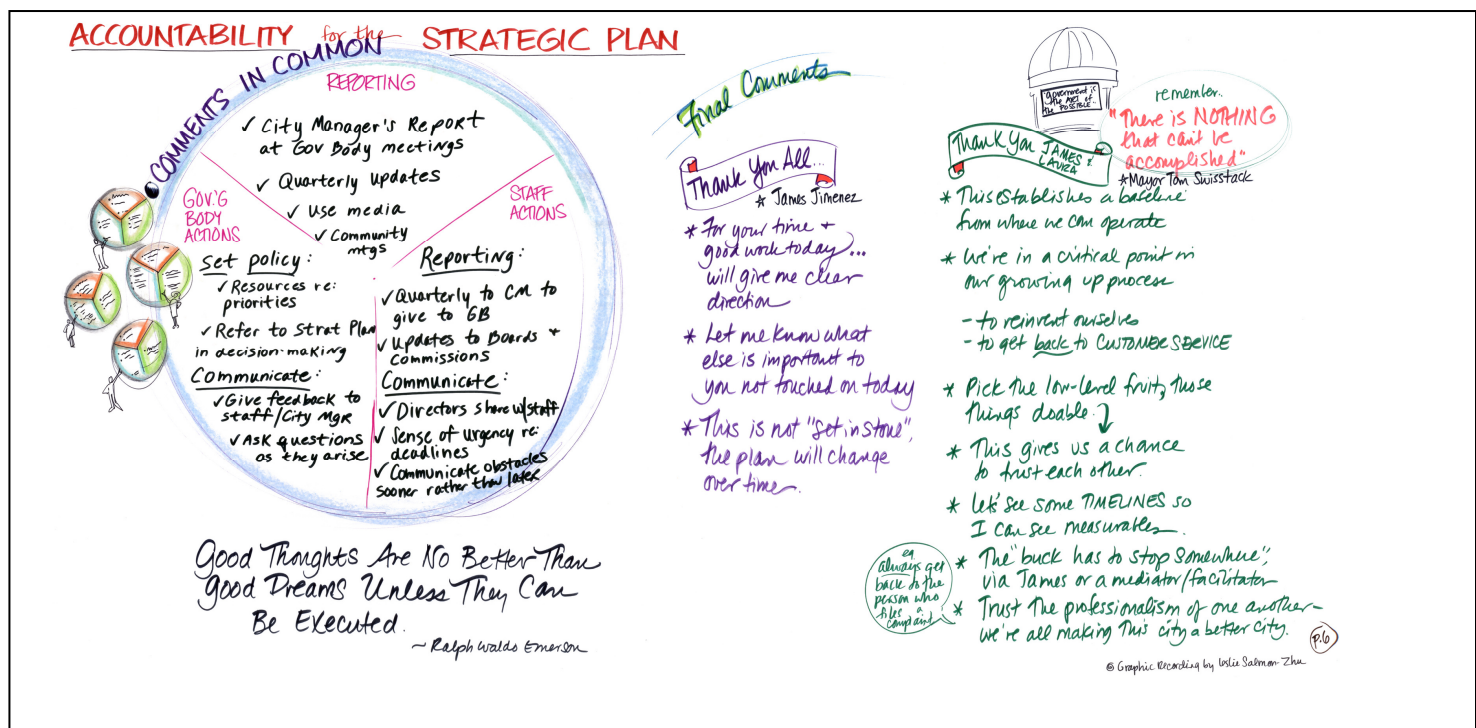 ACCOUNTABILITY for the STRATEGIC PLAN
COMMENTS IN COMMON
REPORTING
✓ City Manager's Report
at Gov Body meetings
✓ Quarterly updates
✓ Use media
✓ Community
mtgs
GOV'G
BODY
ACTIONS
Set policy:
✓ Resources re:
priorities
✓ Refer to Strat Plan
in decision-making
Communicate:
✓ Give feedback to
staff/City Mgr
✓ Ask questions
as they arise
STAFF
ACTIONS
Reporting:
✓ Quarterly to CM to
give to GB
✓ Updates to Boards +
Commissions
Communicate:
✓ Directors share w/staff
✓ Sense of urgency re:
deadlines
✓ Communicate obstacles
sooner rather than later
Good Thoughts Are No Better Than
Good Dreams Unless They Can
Be Executed.
~ Ralph Waldo Emerson
Final Comments
Thank You All...
* James Jimenez
* For your time +
good work today...
will give me clear
direction
* Let me know what
else is important to
you not touched on today
* This is not "set in stone",
the plan will change
over time.
"government is
the ART of
the POSSIBLE"..
remember..
"There is NOTHING
that can't be
accomplished"
*Mayor Tom Swisstack
Thank You JAMES &
LAURA
* This establishes a baseline
from where we can operate
* We're in a critical point in
our growing up process
- to reinvent ourselves
- to get back to CUSTOMER SERVICE
* Pick the low-level fruit, those
things doable.
* This gives us a chance
to trust each other.
* Let's see some TIMELINES so
I can see measurables.
* The "buck has to stop somewhere",
via James or a mediator/facilitator
eg
always get
back to the
person who
files a
complaint
* Trust the professionalism of one another–
we're all making this city a better city.
p.6
© Graphic Recording by Leslie Salmon-Zhu